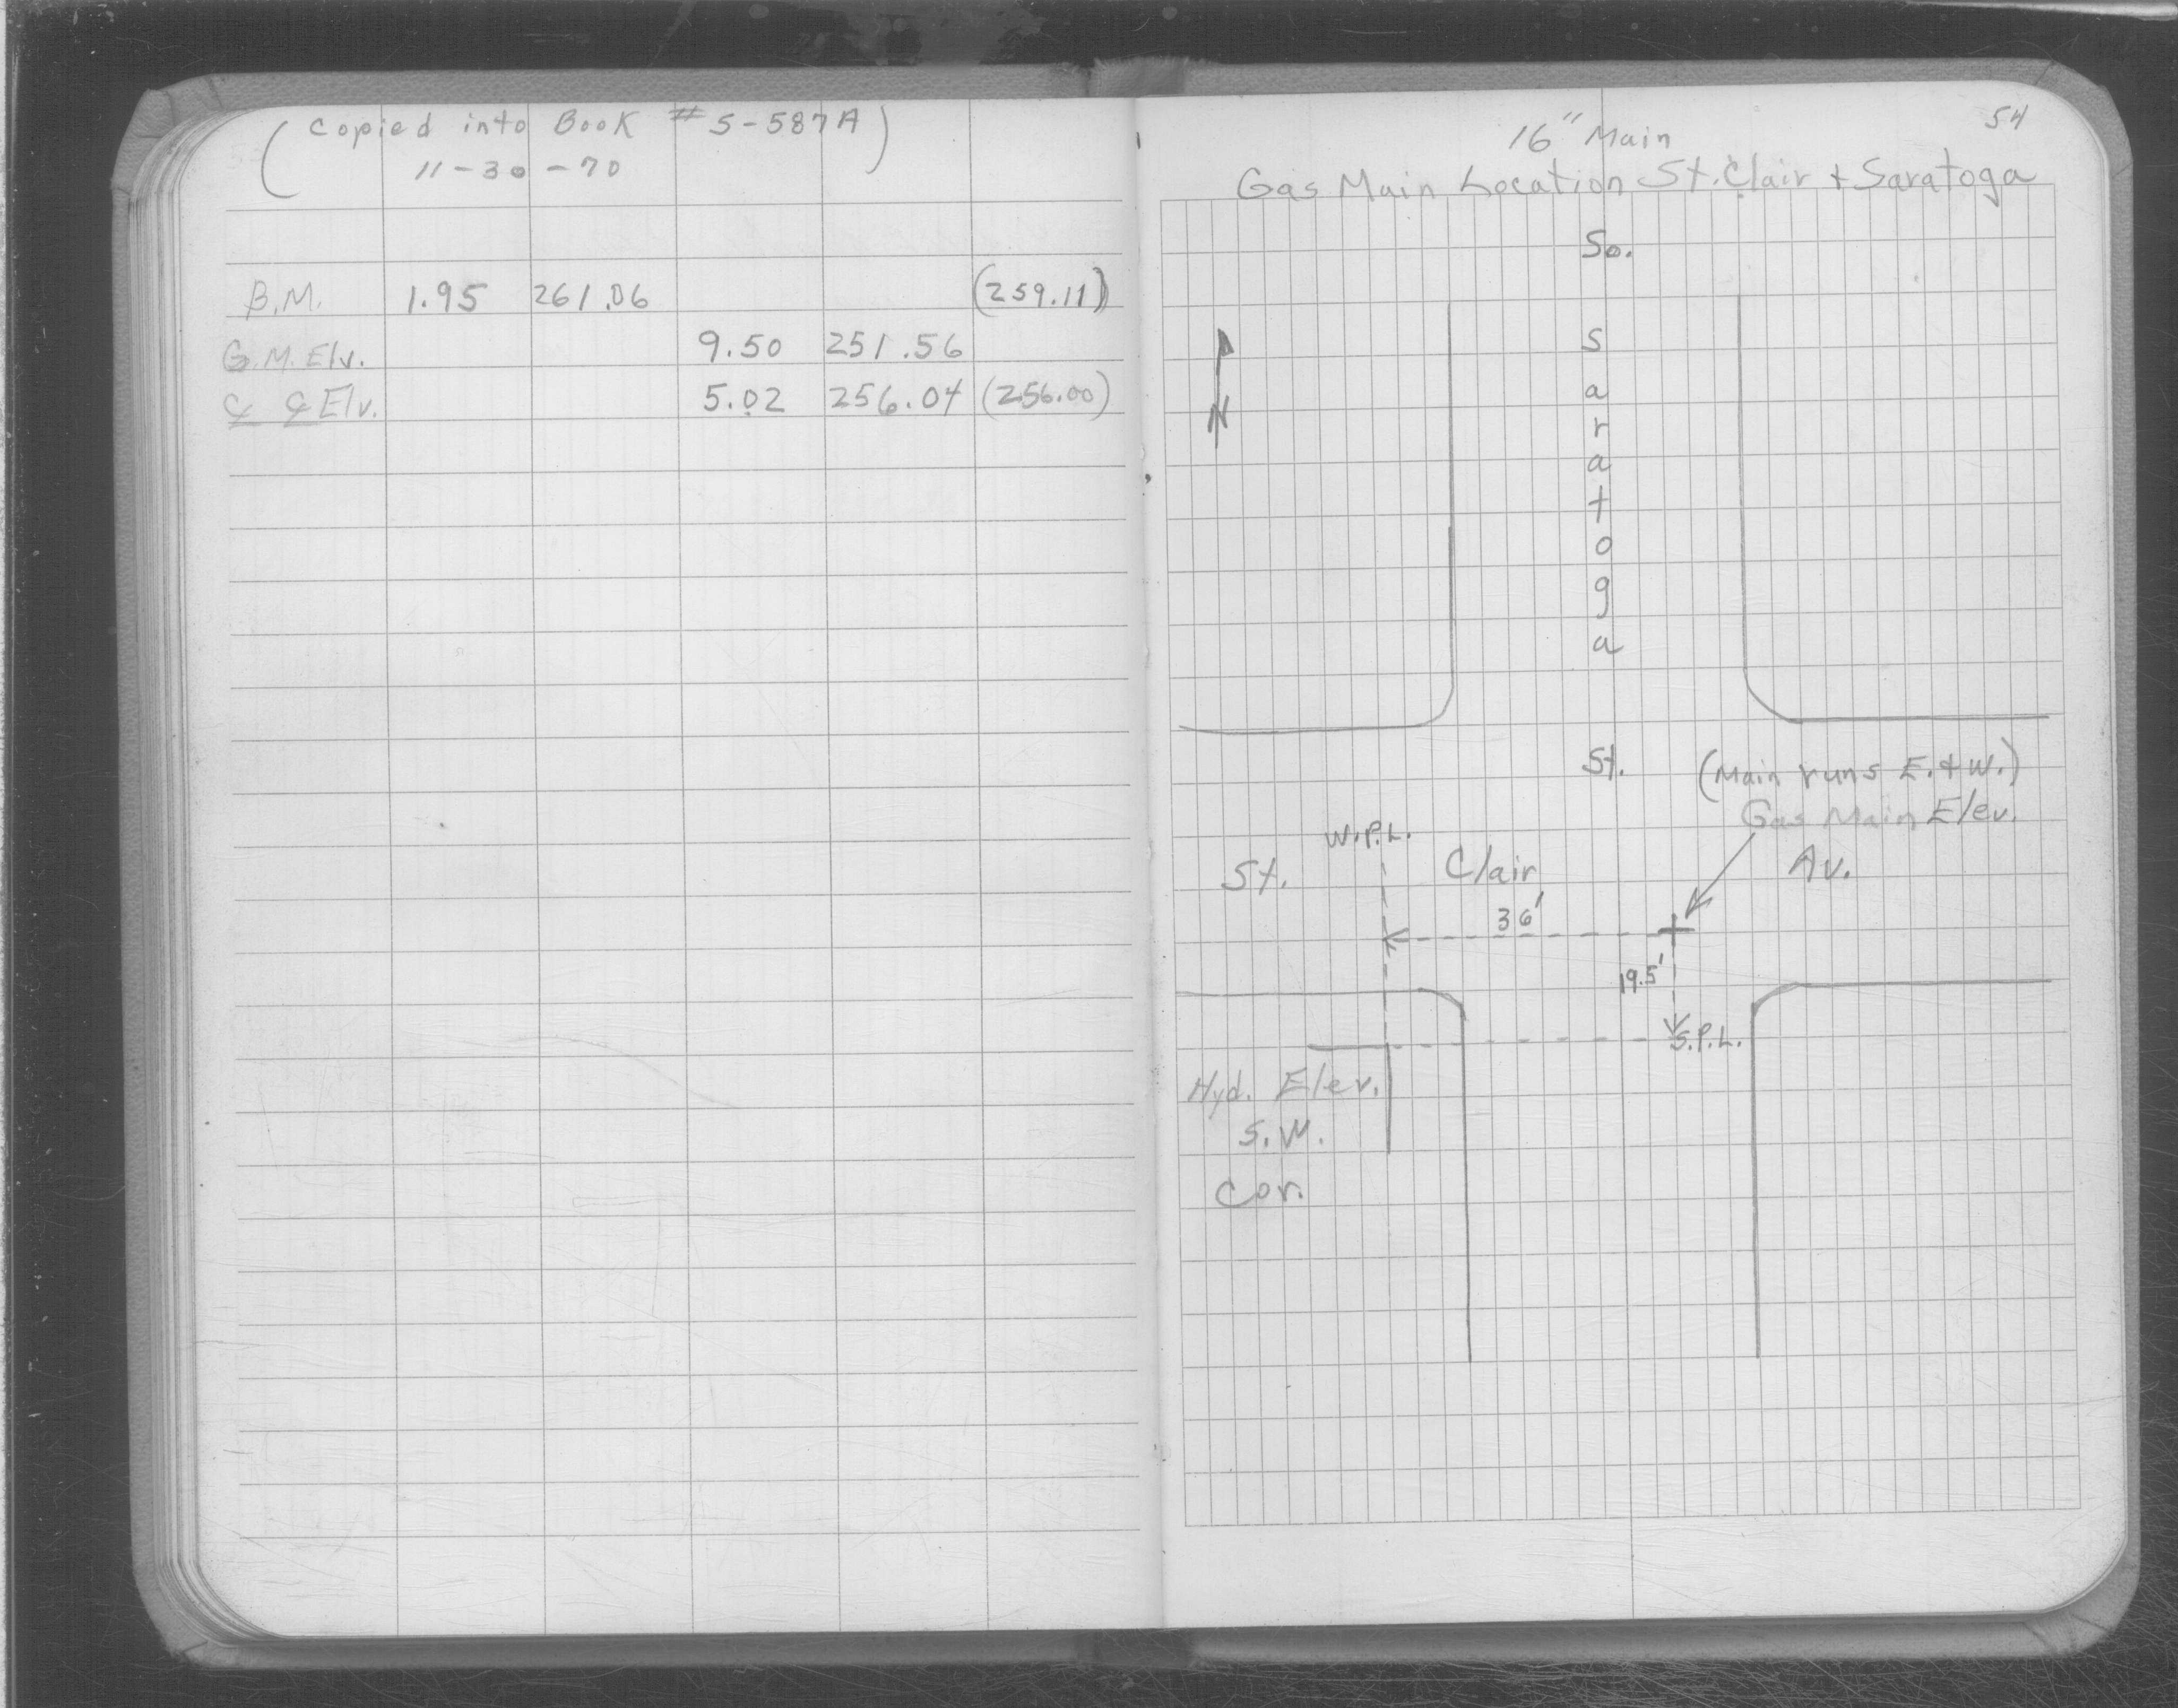 (Copied into Book # S-587A)
11-30-70
B.M. 1.95 261.06 (259.11)
G.M. Elv. 9.50 251.56
℄ ℄ Elv. 5.02 256.04 (256.00)
54
16" Main
Gas Main Location St. Clair + Saratoga
So.
N
Saratoga
St.
(Main runs E. + W.)
Gas Main Elev.
W.P.L.
St. Clair Av.
36'
19.5'
S.P.L.
Hyd. Elev.
S.W.
Cor.